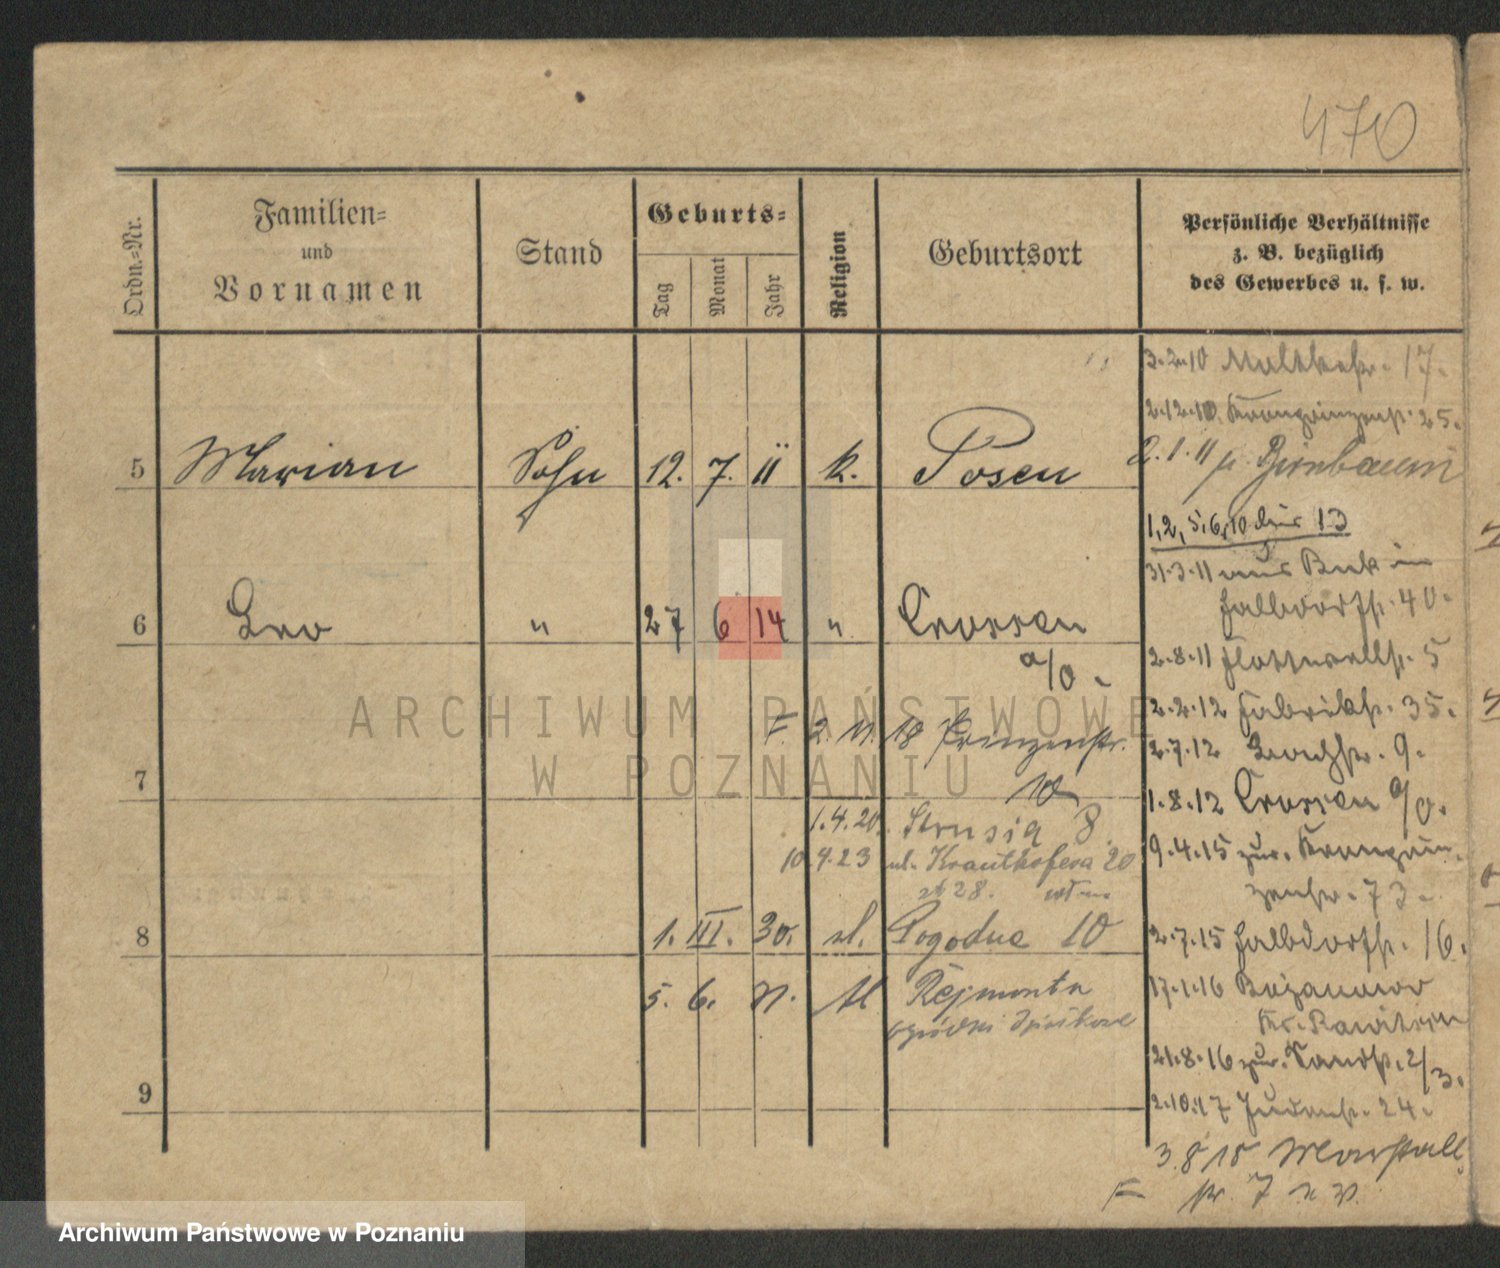 470
Ordn.-Nr.
Familien-
und
Vornamen
Stand
Geburts-
Tag
Monat
Jahr
Religion
Geburtsort
Persönliche Verhältnisse
z. B. bezüglich
des Gewerbes u. s. w.
5 Marian Sohn 12. 7. 11 k. Posen
6 Leo " 27 6 14 " Crossen
a/O.
F. 2. 18 Prinzenstr.
7 10
1.4.20. Strusia 8
10.4.23 ul. Krauthofera 20
28.
8 1. III. 30. ul. Pogodna 10
5. 6. Rejmonta
9
3.2.10 Moltkestr. 17.
2.12.10. Kronprinzenstr. 25.
2.1.11 Birnbaum
1, 2, 5, 6, 10 13
31.3.11 aus Buk in
Halbdorfstr. 40.
2.8.11 Flottwellstr. 5
2.2.12 Fabrikstr. 35.
2.7.12 9.
1.8.12 Crossen a/O.
9.4.15 zur. Kronprin-
zenstr. 73.
2.7.15 Halbdorfstr. 16.
17.1.16 Bojanowo
Kr. Rawitsch
21.8.16 zur. Sandstr. 2/3.
2.10.17 Judenstr. 24.
3.8 18 Marstall
F str. 7
ARCHIWUM PAŃSTWOWE
W POZNANIU
Archiwum Państwowe w Poznaniu